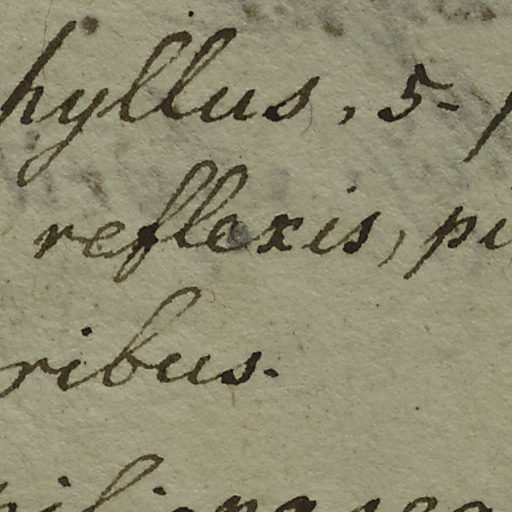 hyllus, 5-
reflexis, pi
ribus.